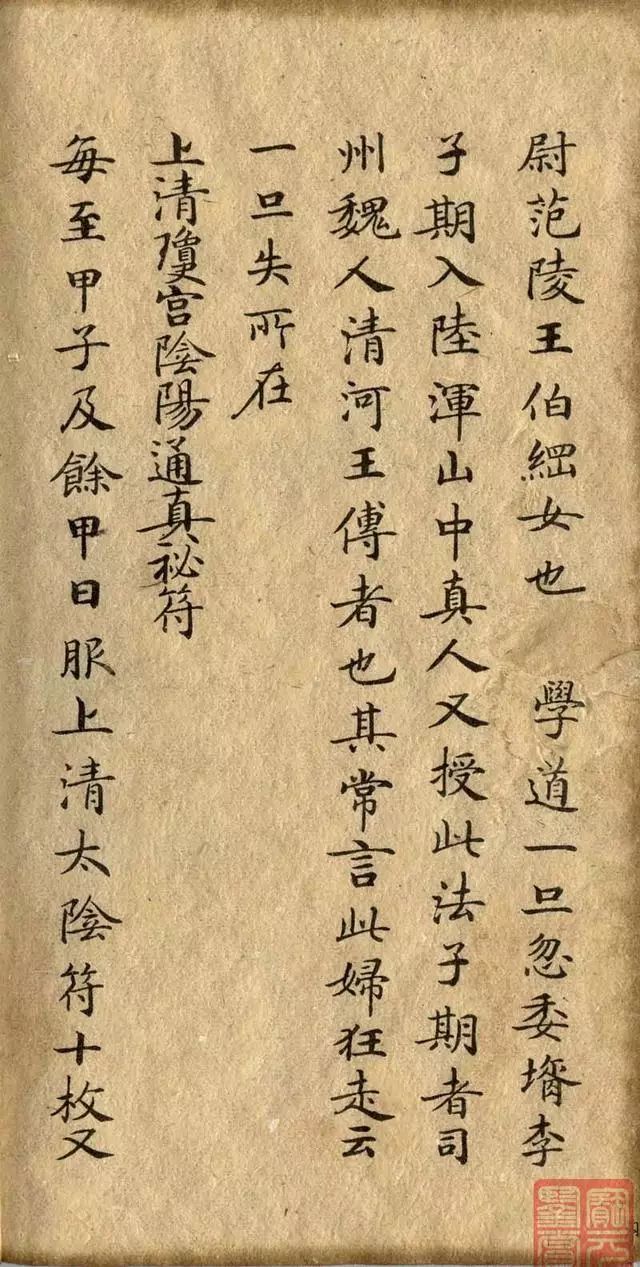 尉范陵王伯綱女也 學道一旦忽委壻李
子期入陸渾山中真人又授此法子期者司
州魏人清河王傅者也其常言此婦狂走云
一旦失所在
上清瓊宮陰陽通真祕符
每至甲子及餘甲日服上清太陰符十枚又